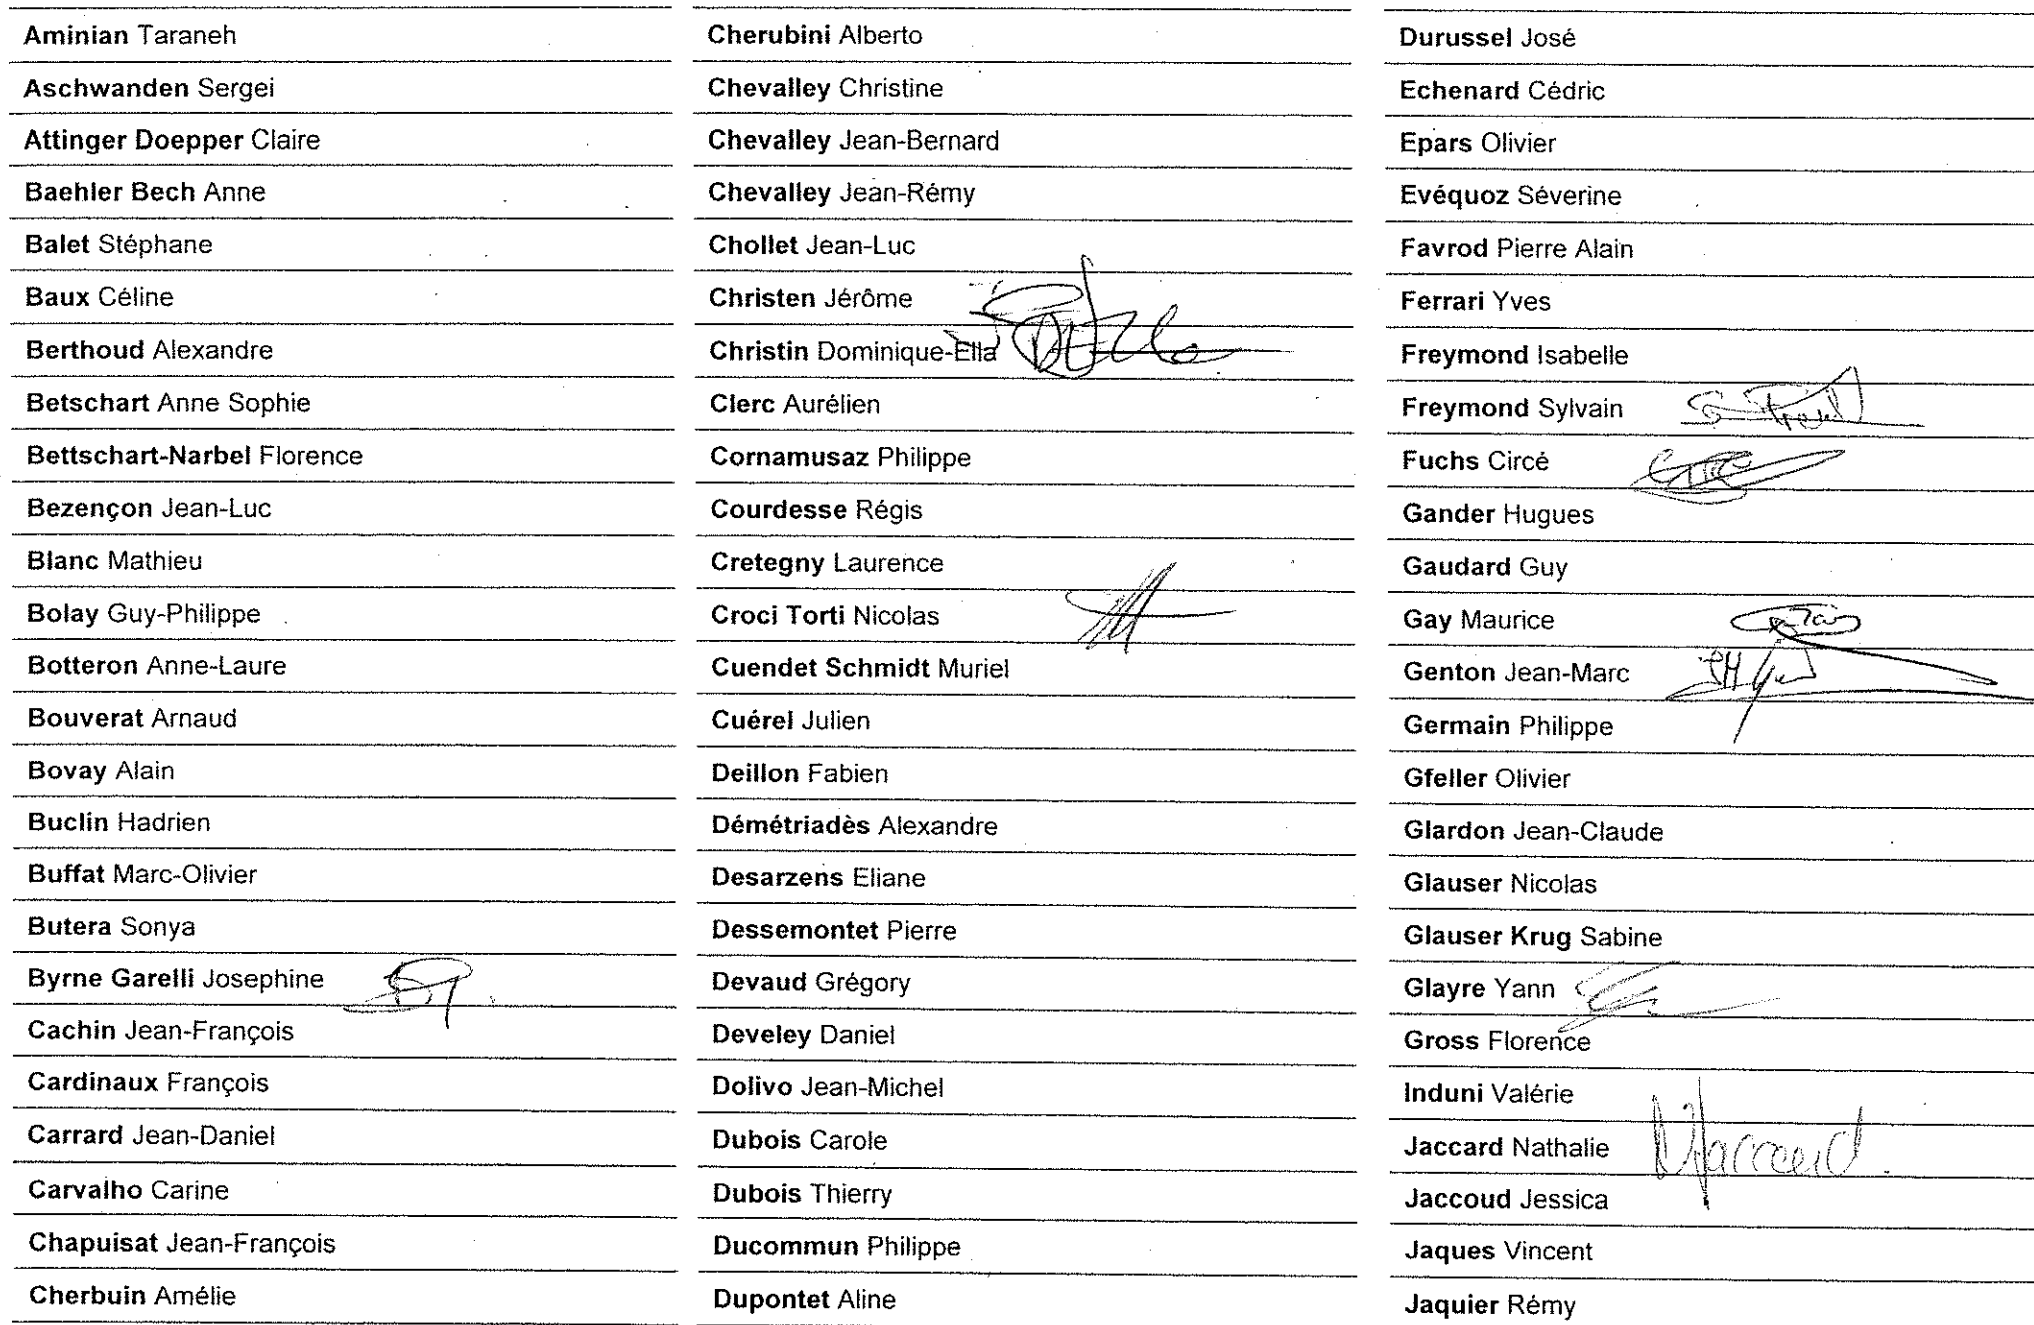 Aminian Taraneh
Aschwanden Sergei
Attinger Doepper Claire
Baehler Bech Anne
Balet Stéphane
Baux Céline
Berthoud Alexandre
Betschart Anne Sophie
Bettschart-Narbel Florence
Bezençon Jean-Luc
Blanc Mathieu
Bolay Guy-Philippe
Botteron Anne-Laure
Bouverat Arnaud
Bovay Alain
Buclin Hadrien
Buffat Marc-Olivier
Butera Sonya
Byrne Garelli Josephine
Cachin Jean-François
Cardinaux François
Carrard Jean-Daniel
Carvalho Carine
Chapuisat Jean-François
Cherbuin Amélie
Cherubini Alberto
Chevalley Christine
Chevalley Jean-Bernard
Chevalley Jean-Rémy
Chollet Jean-Luc
Christen Jérôme
Christin Dominique-Ella
Clerc Aurélien
Cornamusaz Philippe
Courdesse Régis
Cretegny Laurence
Croci Torti Nicolas
Cuendet Schmidt Muriel
Cuérel Julien
Deillon Fabien
Démétriadès Alexandre
Desarzens Eliane
Dessemontet Pierre
Devaud Grégory
Develey Daniel
Dolivo Jean-Michel
Dubois Carole
Dubois Thierry
Ducommun Philippe
Dupontet Aline
Durussel José
Echenard Cédric
Epars Olivier
Evéquoz Séverine
Favrod Pierre Alain
Ferrari Yves
Freymond Isabelle
Freymond Sylvain
Fuchs Circé
Gander Hugues
Gaudard Guy
Gay Maurice
Genton Jean-Marc
Germain Philippe
Gfeller Olivier
Glardon Jean-Claude
Glauser Nicolas
Glauser Krug Sabine
Glayre Yann
Gross Florence
Induni Valérie
Jaccard Nathalie
NJaccard
Jaccoud Jessica
Jaques Vincent
Jaquier Rémy